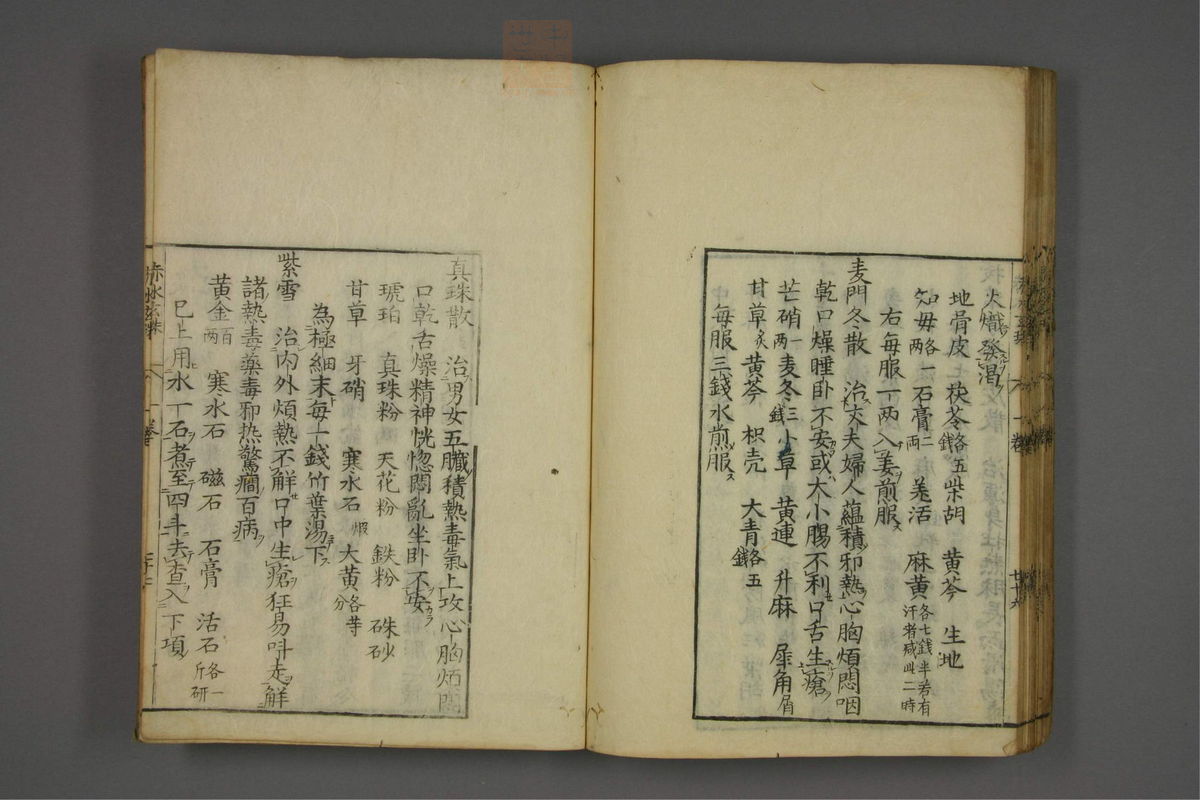 火熾發渴
地骨皮 茯苓各五錢 柴胡 黄芩 生地
知母各一兩 石膏二兩 羌活 麻黄各七錢半若有汗者减此二時
右每服一兩入姜煎服
麦門冬散 治丈夫婦人蘊積邪熱心胸煩悶咽
乾口燥睡卧不安或大小腸不利口舌生瘡
芒硝一兩 麦冬三錢 小草 黄連 升麻 犀角屑
甘草炙 黄芩 枳壳 大青各五錢
每服三錢水煎服
真珠散 治男女五臟積熱毒氣上攻心胸煩悶
口乾舌燥精神恍惚悶亂坐卧不安
琥珀 真珠粉 天花粉 鉄粉 硃砂
甘草 牙硝 寒水石煅 大黄各等分
為極細末每一錢竹葉湯下
紫雪 治内外煩熱不解口中生瘡狂易呌走解
諸熱毒藥毒邪热驚癇百病
黄金百兩 寒水石 磁石 石膏 活石各一斤研
已上用水一石煮至四斗去查入下項
赤水玄珠